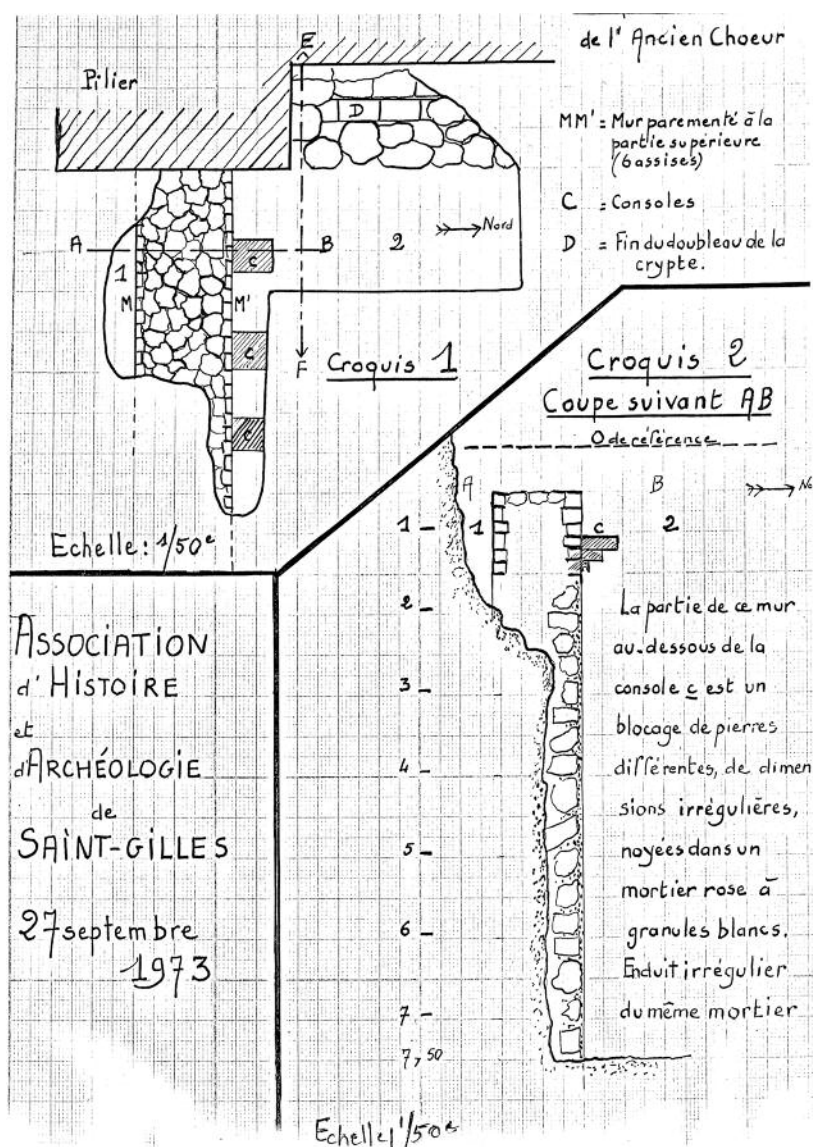 de l'Ancien Choeur
MM' = Mur parementé à la
partie supérieure
(6 assises)
C = Consoles
D = Fin du doubleau de la
crypte.
Pilier
E
D
A
1
M
M'
C
B
2
Nord
C
F
C
Croquis 1
Echelle: 1/50e
Croquis 2
Coupe suivant AB
0 de référence
A
B
No
1
1
C
2
2
3
4
5
6
7
7,50
La partie de ce mur
au-dessous de la
console c est un
blocage de pierres
différentes, de dimen
sions irrégulières,
noyées dans un
mortier rose à
granules blancs.
Enduit irrégulier
du même mortier
Echelle 1/50e
ASSOCIATION
d'HISTOIRE
et
d'ARCHÉOLOGIE
de
SAINT-GILLES
27 septembre
1973